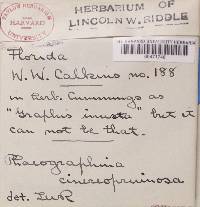 HERBARIUM OF
LINCOLN W. RIDDLE
HARVARD
UNIVERSITY
Florida
W. W. Calkins no. 188
in herb. Cummings as
"Graphis inusta" but it
can not be that.
Phaeographina
cinereopruinosa
det. LWR